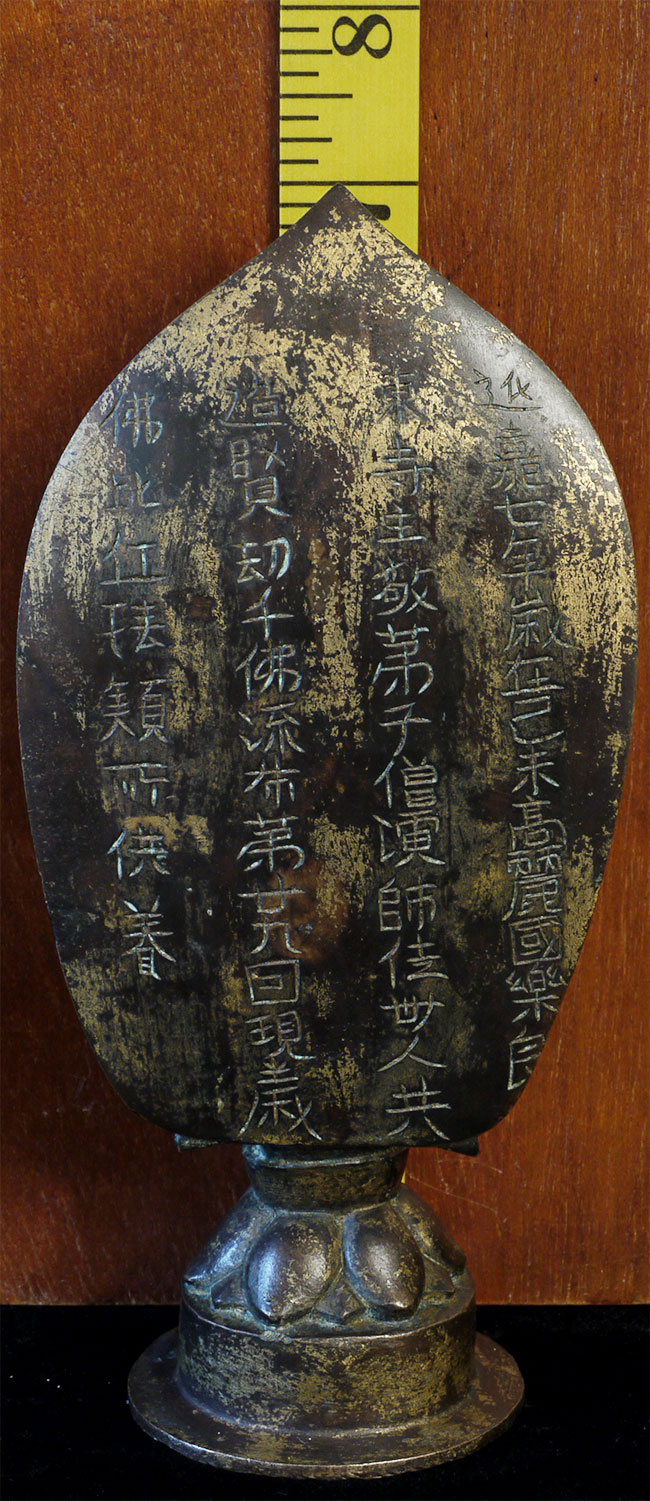 8
延嘉七年歲在己未高麗國樂良
東寺主敬弟子僧演師徒卌人共
造賢劫千佛流布第廿九回現歲
佛比丘法穎所供養